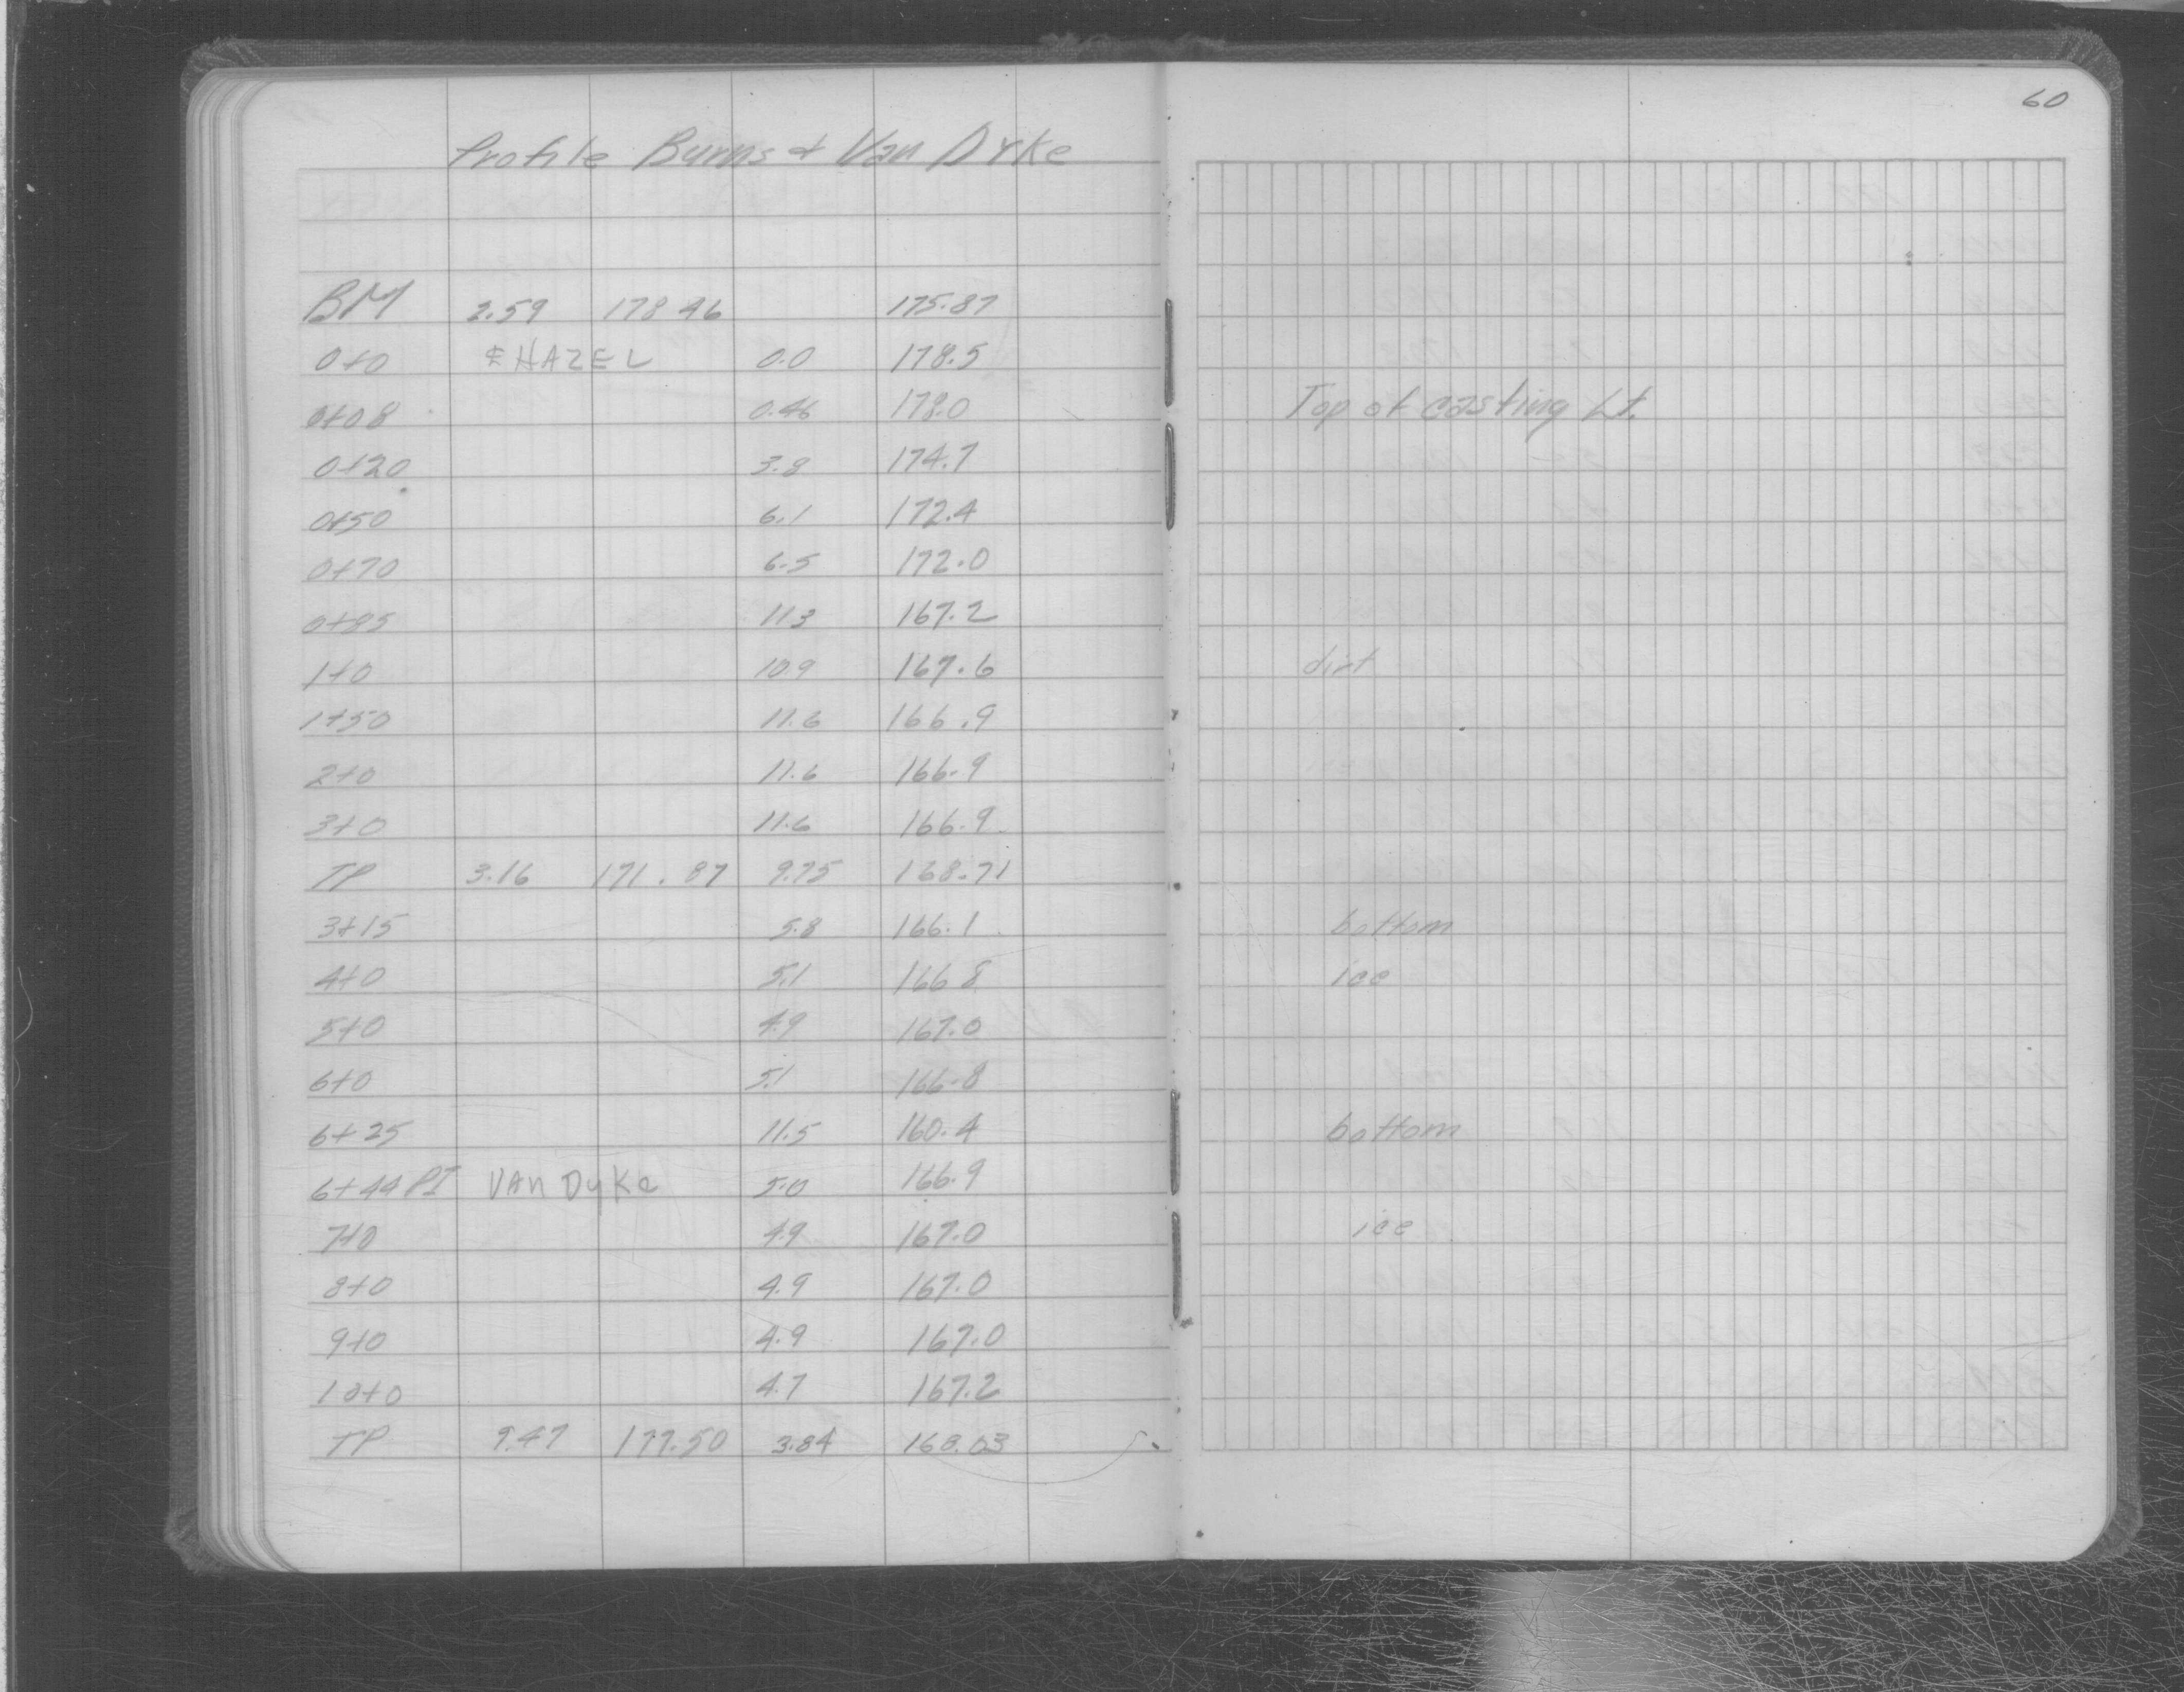 60
Profile Burns + Van Dyke
BM 2.59 178.46 175.87
0+0 ℄ HAZEL 0.0 178.5
0+08 0.46 178.0 Top of casting Lt.
0+20 3.8 174.7
0+50 6.1 172.4
0+70 6.5 172.0
0+85 11.3 167.2
1+0 10.9 167.6 dirt
1+50 11.6 166.9
2+0 11.6 166.9
3+0 11.6 166.9
TP 3.16 171.87 9.75 168.71
3+15 5.8 166.1 bottom
4+0 5.1 166.8 ice
5+0 4.9 167.0
6+0 5.1 166.8
6+25 11.5 160.4 bottom
6+44 PI VAN DyKe 5.0 166.9
7+0 4.9 167.0 ice
8+0 4.9 167.0
9+0 4.9 167.0
10+0 4.7 167.2
TP 9.47 177.50 3.84 168.03